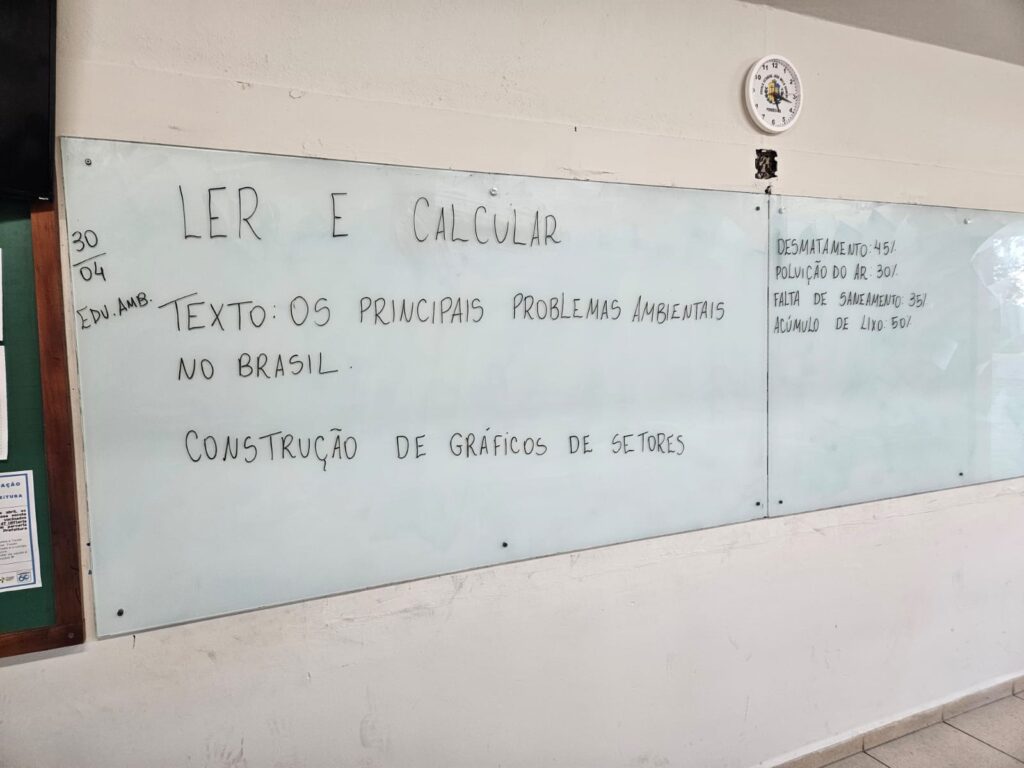 30
04
EDU. AMB.
LER E CALCULAR
TEXTO: OS PRINCIPAIS PROBLEMAS AMBIENTAIS
NO BRASIL.
CONSTRUÇÃO DE GRÁFICOS DE SETORES
DESMATAMENTO: 45%
POLUIÇÃO DO AR: 30%
FALTA DE SANEAMENTO: 35%
ACÚMULO DE LIXO: 50%